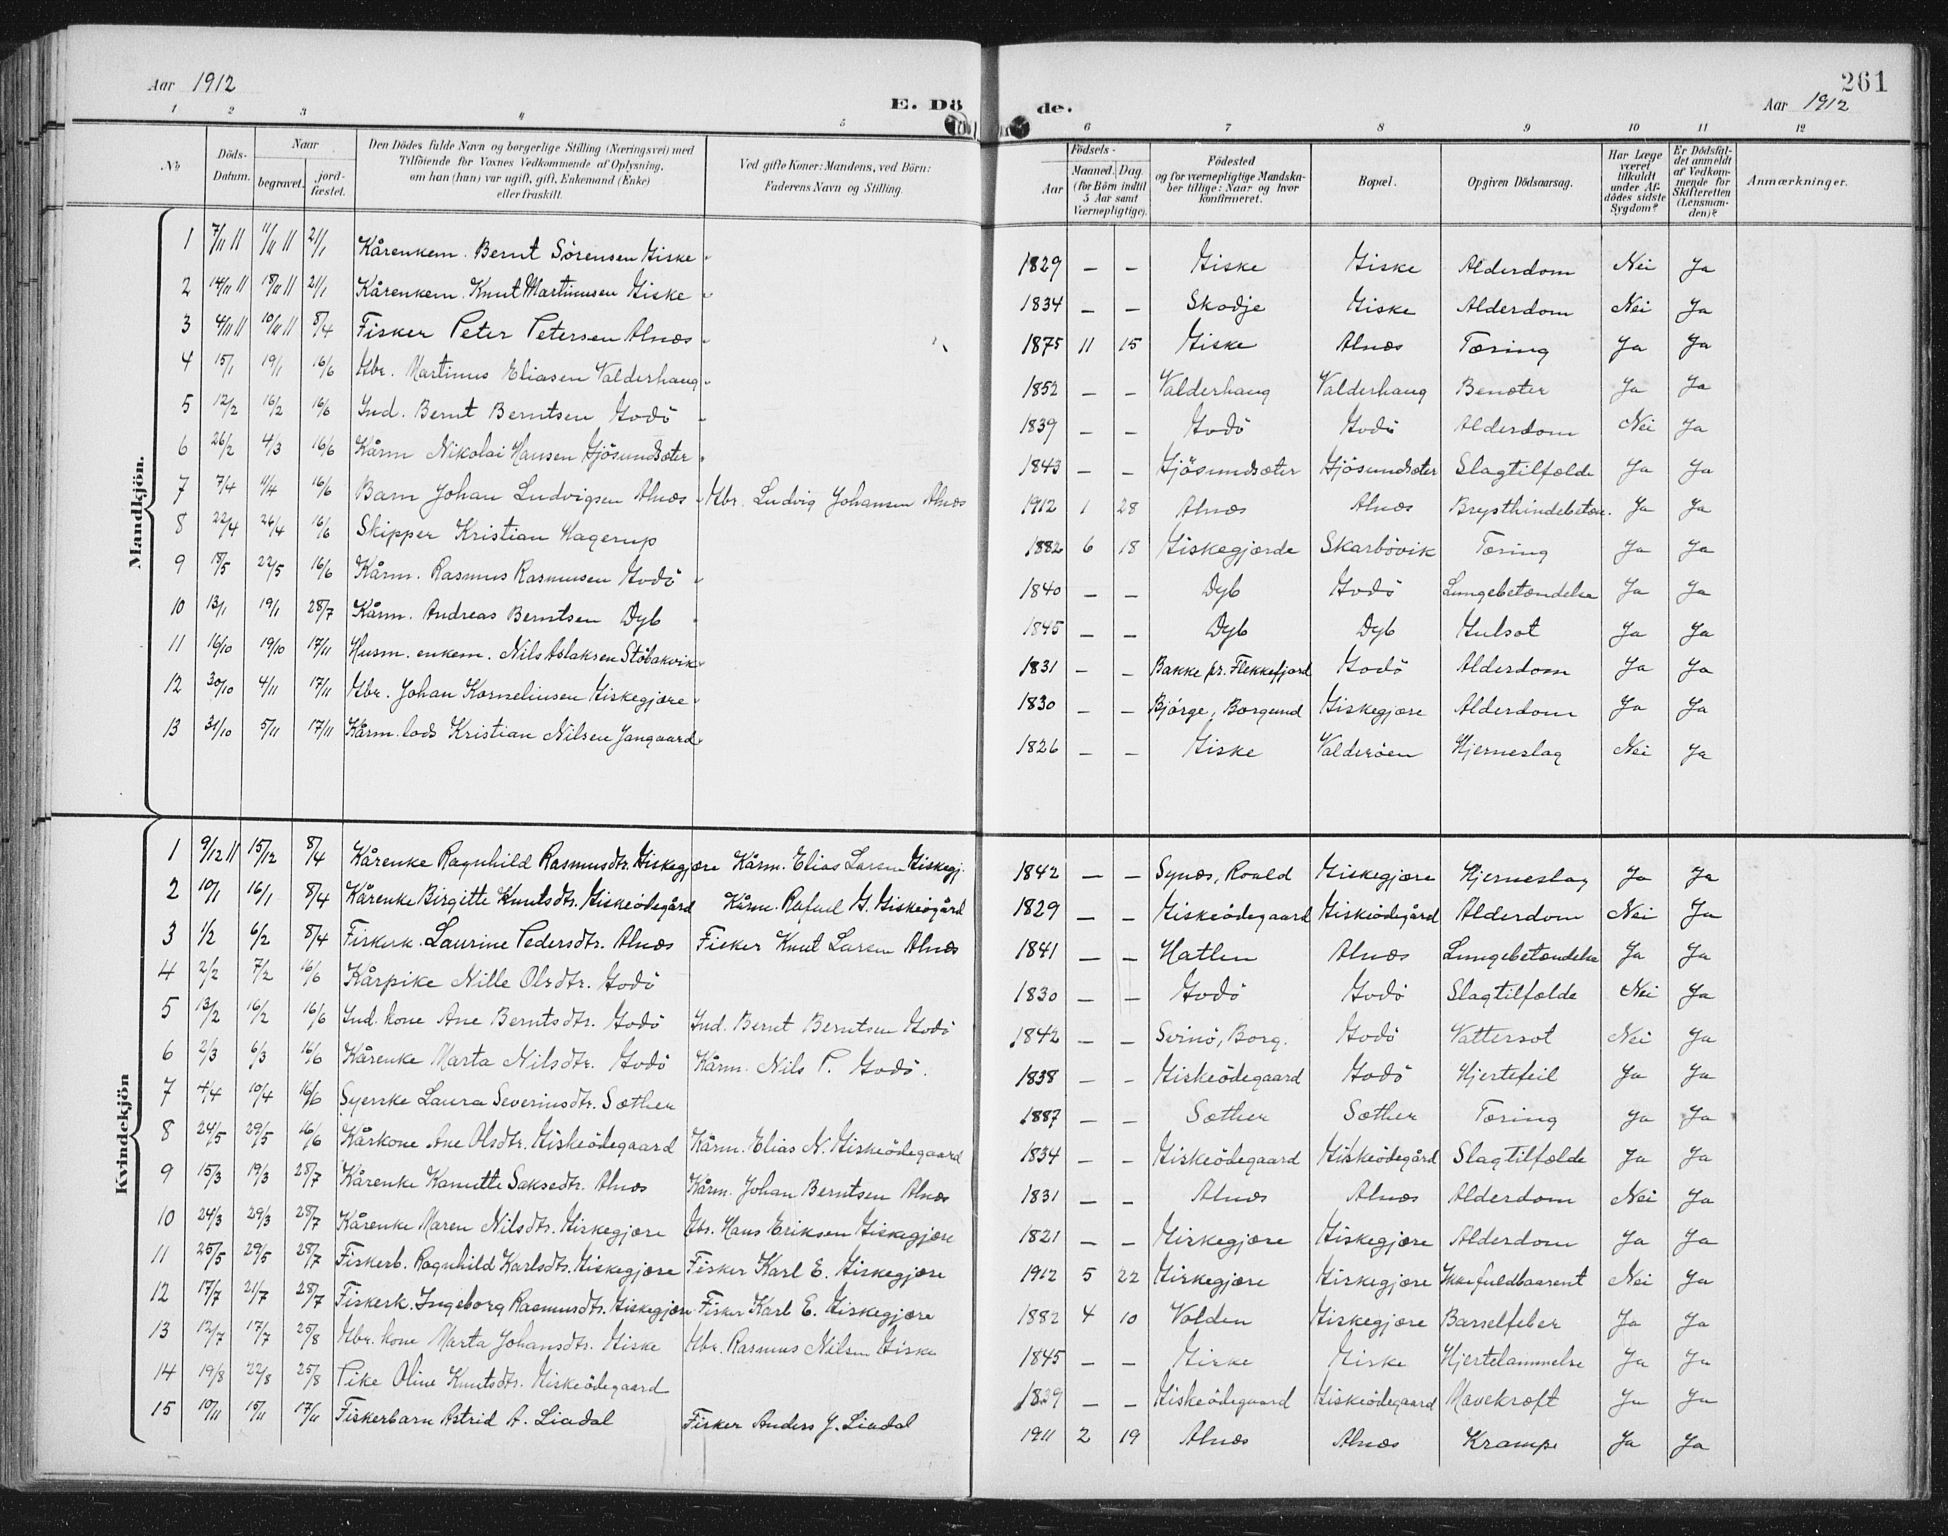 Aar 1912
E. Dö
de.
261
Aar 1912
1 2 3 4 5 6 7 8 9 10 11 12
No
Döds-Datum.
Naar
begravet.
jord-fæstet.
Den Dödes fulde Navn og borgerlige Stilling (Næringsvei) med
Tilföiende for Voxnes Vedkommende af Oplysning,
om han (hun) var ugift, gift, Enkemand (Enke)
eller fraskilt.
Ved gifte Koner: Mandens, ved Börn:
Faderens Navn og Stilling.
Födsels-
Aar
Maaned. Dag.
(for Börn indtil
5 Aar samt
Værnepligtige).
Födested
og for værnepligtige Mandska-
ber tillige: Naar og hvor
konfirmeret.
Bopæl.
Opgiven Dödsaarsag.
Har Læge
været
tilkaldt
under Af-
dödes sidste
Sygdom?
Er Dödsfal-
det anmeldt
af Vedkom-
mende for
Skifteretten
(Lensman-
den)?
Anmærkninger.
Mandkjön.
1 7/11 11 11/11 11 21/1 Kårenkem. Bernt Sörensen Giske 1829 – – Giske Giske Alderdom Nei Ja
2 14/11 11 18/11 11 21/1 Kårenkem. Knut Martinusen Giske 1834 – – Skodje Giske Alderdom Nei Ja
3 4/11 11 10/11 11 8/4 Fisker Peter Petersen Alnæs 1875 11 15 Giske Alnæs Tæring Ja Ja
4 15/1 19/1 16/6 Gbr. Martinus Eliasen Valderhaug 1852 – – Valderhaug Valderhaug Benæter Ja Ja
5 12/2 16/2 16/6 Ind. Bernt Berntsen Godö 1839 – – Godö Godö Alderdom Nei Ja
6 26/2 4/3 16/6 Kårm Nikolai Hansen Gjösundsæter 1843 – – Gjösundsæter Gjösundsæter Slagtilfælde Ja Ja
7 7/4 11/4 16/6 Barn Johan Ludvigsen Alnæs Gbr. Ludvig Johansen Alnæs 1912 1 28 Alnæs Alnæs Brysthindebetæn. Ja Ja
8 22/4 26/4 16/6 Skipper Kristian Hagerup 1882 6 18 Giskegjærde Skarbövik Tæring Ja Ja
9 18/5 22/5 16/6 Kårm. Rasmus Rasmusen Godö 1840 – – Dyb Godö Lungebetændelse Ja Ja
10 13/1 19/1 28/7 Kårm. Andreas Berntsen Dyb 1845 – – Dyb Dyb Gulsot Ja Ja
11 16/10 19/10 17/11 Husm. enkem. Nils Aslaksen Stöbakvik 1831 – Bakke pr. Flekkefjord Godö Alderdom Ja Ja
12 30/10 4/11 17/11 Gbr. Johan Korneliusen Giskegjære 1830 – – Bjørge, Borgund Giskegjære Alderdom Ja Ja
13 31/10 5/11 17/11 Kårm. lods Kristian Nilsen Jangaard 1826 – – Giske Valderöen Hjerneslag Nei Ja
Kvindekjön
1 9/12 11 15/12 8/4 Kårenke Ragnhild Rasmusdtr. Giskegjære Kårm. Elias Larsen Giskegj. 1842 – – Synæs, Roald Giskegjære Hjerneslag Ja Ja
2 10/1 16/1 8/4 Kårenke Birgitte Knutsdtr. Giskeödegård Kårm. Rafael G. Giskeögård 1829 – – Giskeödegaard Giskeödegård Alderdom Nei Ja
3 1/2 6/2 8/4 Fiskerk. Laurine Pedersdtr. Alnæs Fisker Knut Larsen Alnæs 1841 – – Hatlen Alnæs Lungebetændelse Ja Ja
4 2/2 7/2 16/6 Kårpike Nille Olsdtr. Godö 1830 – – Godö Godö Slagtilfælde Nei Ja
5 13/2 16/2 16/6 Ind. kone Ane Berntsdtr. Godö Ind. Bernt Berntsen Godö 1842 – – Svinö, Borg. Godö Vattersot Nei Ja
6 2/3 6/3 16/6 Kårenke Marta Nilsdtr. Godö Kårm. Nils P. Godö. 1838 – – Giskeödegaard Godö Hjertefeil Ja Ja
7 4/4 10/4 16/6 Syerske Laura Severinsdtr. Sæther 1887 – – Sæther Sæther Tæring Ja Ja
8 24/5 29/5 16/6 Kårkone Ane Olsdtr. Giskeödegaard Kårm. Elias N. Giskeödegaard 1834 – – Giskeödegaard Giskeödegård Slagtilfælde Ja Ja
9 15/3 19/3 28/7 Kårenke Kanutte Saksedtr. Alnæs Kårm. Johan Berntsen Alnæs 1831 – – Alnæs Alnæs Alderdom Nei Ja
10 24/3 29/3 28/7 Kårenke Maren Nilsdtr. Giskegjære Gbr. Hans Eriksen Giskegjære 1821 – – Giskegjære Giskegjære Alderdom Ja Ja
11 25/5 29/5 28/7 Fiskerb. Ragnhild Karlsdtr. Giskegjære Fisker Karl E. Giskegjære 1912 5 22 Giskegjære Giskegjære Ikke fuldbaarent Nei Ja
12 17/7 21/7 28/7 Fiskerk. Ingeborg Rasmusdtr. Giskegjære Fisker Karl E. Giskegjære 1882 4 10 Volden Giskegjære Barselfeber Ja Ja
13 12/7 17/7 25/8 Gbr. kone Marta Johansdtr. Giske Gbr. Rasmus Nilsen Giske 1845 – – Giske Giske Hjertelammelse Ja Ja
14 19/8 22/8 25/8 Pike Oline Knutsdtr. Giskeödegaard 1839 – – Giskeödegaard Giskeödegaard Mavekræft Ja Ja
15 10/11 15/11 17/11 Fiskerbarn Astrid A. Liadal Fisker Anders J. Liadal 1911 2 19 Alnæs Alnæs Krampe Ja Ja